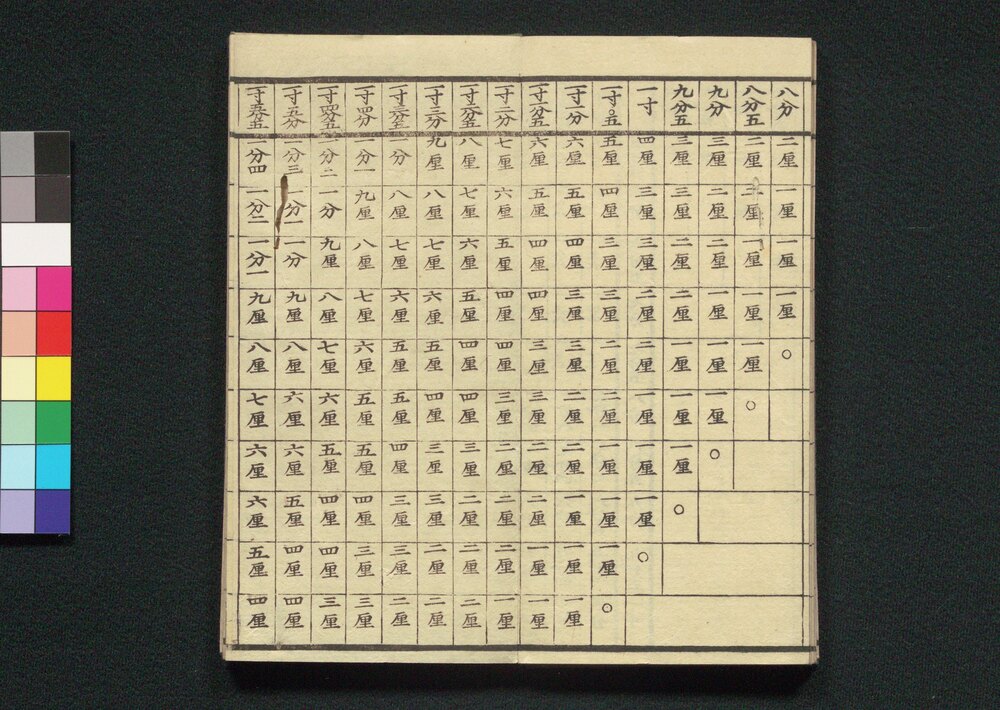 八分 二厘 一厘 一厘 一厘 ○
八分五 二厘 二厘 一厘 一厘 一厘 ○
九分 三厘 二厘 二厘 一厘 一厘 一厘 ○
九分五 三厘 三厘 二厘 二厘 一厘 一厘 一厘 ○
一寸 四厘 三厘 三厘 二厘 二厘 一厘 一厘 一厘 ○
一寸〇五 五厘 四厘 三厘 三厘 二厘 二厘 一厘 一厘 一厘 ○
一寸一分 六厘 五厘 四厘 三厘 三厘 二厘 二厘 一厘 一厘 一厘
一寸一分五 六厘 五厘 四厘 四厘 三厘 三厘 二厘 二厘 一厘 一厘
一寸二分 七厘 六厘 五厘 四厘 四厘 三厘 二厘 二厘 二厘 一厘
一寸二分五 八厘 七厘 六厘 五厘 四厘 四厘 三厘 二厘 二厘 二厘
一寸三分 九厘 八厘 七厘 六厘 五厘 四厘 三厘 三厘 二厘 二厘
一寸三分五 一分 八厘 七厘 六厘 五厘 五厘 四厘 三厘 三厘 二厘
一寸四分 一分一 九厘 八厘 七厘 六厘 五厘 五厘 四厘 三厘 三厘
一寸四分五 一分二 一分 九厘 八厘 七厘 六厘 五厘 四厘 四厘 三厘
一寸五分 一分三 一分一 一分 九厘 八厘 六厘 六厘 五厘 四厘 四厘
一寸五分五 一分四 一分二 一分一 九厘 八厘 七厘 六厘 六厘 五厘 四厘